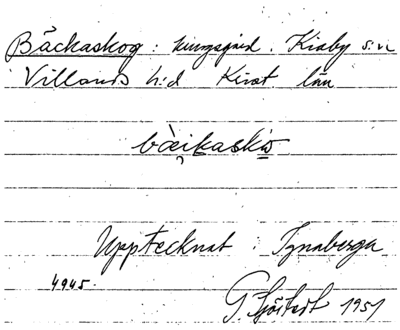 Bäckaskog: kungsgård. Kiaby s:n
Villands h:d Krist län
Upptecknat: Ignaberga
4945.
G. Sjöstedt 1951